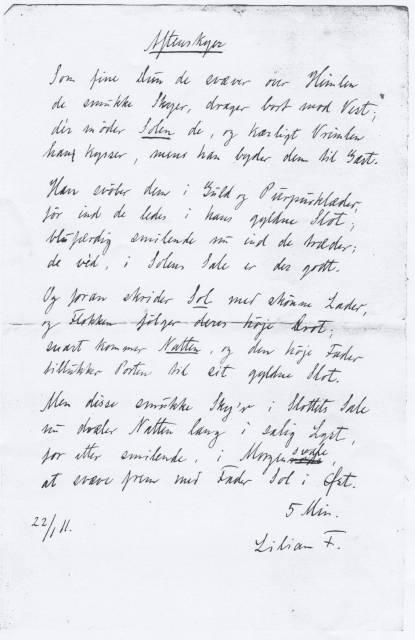 Aftenskyer
Som fine Dun de svæver over Himlen
de smukke Skyer, drager bort mod Vest;
dér möder Solen de, og kærligt Vrimlen
han kysser, mens han byder dem til Gæst.
Han svöber dem i Guld og Purpurklæder,
för ind de ledes i hans gyldne Slot;
blufærdig smilende nu ind de træder;
de véd, i Solens Sale er der godt.
Og foran skrider Sol med skönne Lader,
og Flokken fölger deres höje Drot;
snart kommer Natten, og den höje Fader
tillukker Porten til sit gyldne Slot.
Men disse smukke Sky'r i Slottets Sale
nu dvæler Natten lang i salig Lyst,
for etter smilende, i Morgen svale,
at svæve frem med Fader Sol i Øst.
5 Min.
22/1 11.
Lilian F.